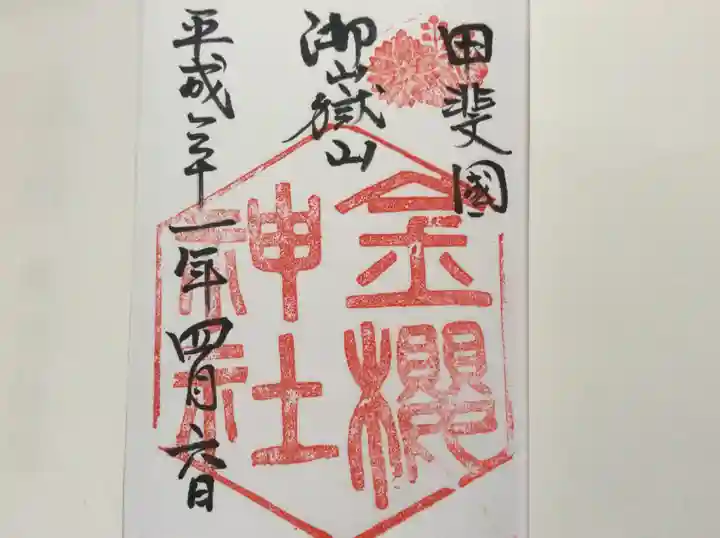 甲斐國
御嶽山
金櫻
神社
平成三十一年四月六日